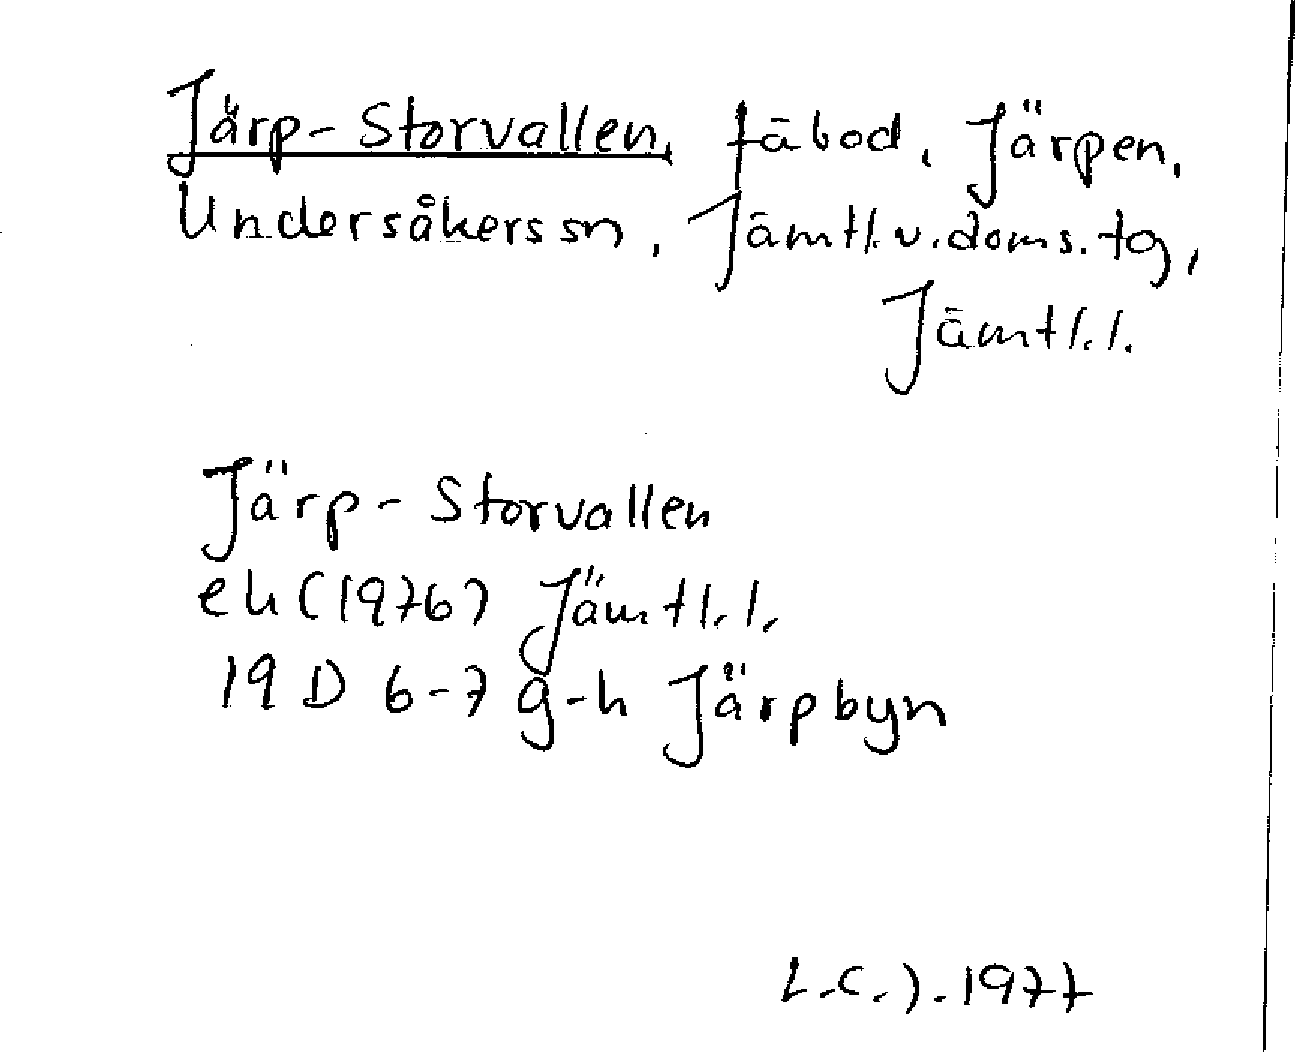 Järp-Storvallen, fäbod, Järpen,
Undersåkers sn, Jämtl.v.doms.tg,
Jämtl.l.
Järp-Storvallen
ek (1976) Jämtl.l.
19 D 6-7 g-h Järpbyn
L.C.J. 1977